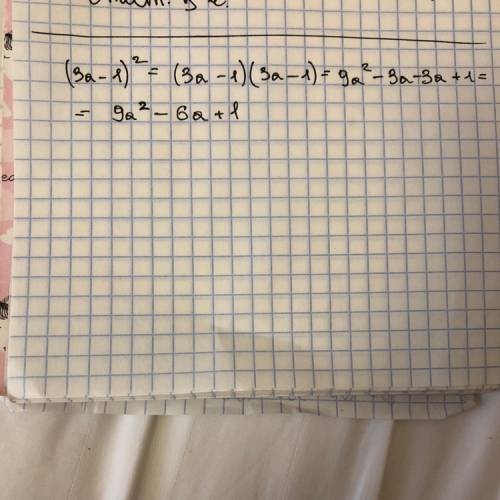 (3a - 1)² = (3a - 1)(3a - 1) = 9a² - 3a - 3a + 1 =
= 9a² - 6a + 1